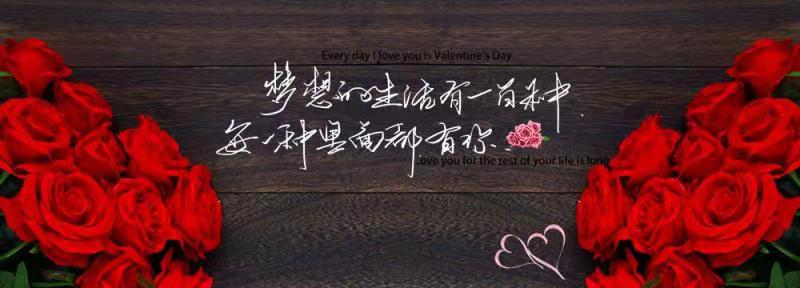 Every day I love you is Valentine's Day
梦想的生活有一百种.
每一种里面都有你:
ove you for the rest of your life is long